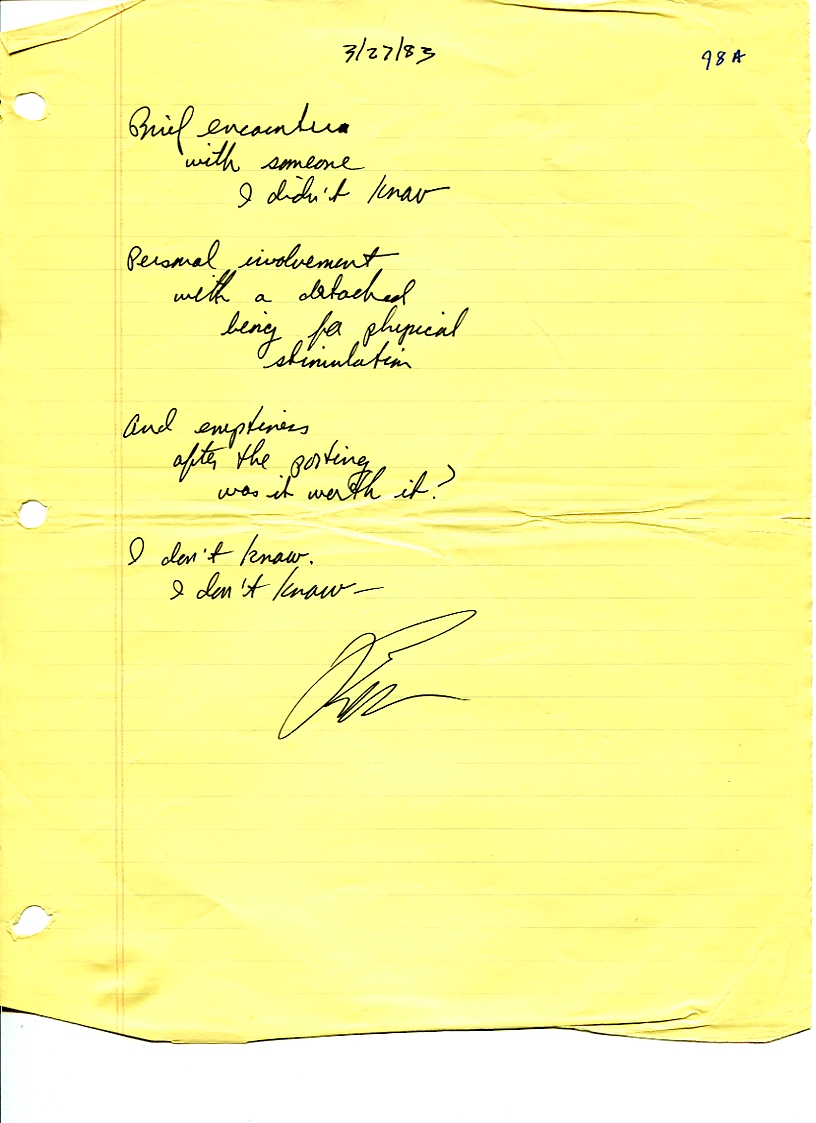 3/27/83
98A
Brief encounters
with someone
I didn't know
Personal involvement
with a detached
being for physical
stimulation
And emptiness
after the parting
was it worth it?
I don't know.
I don't know—